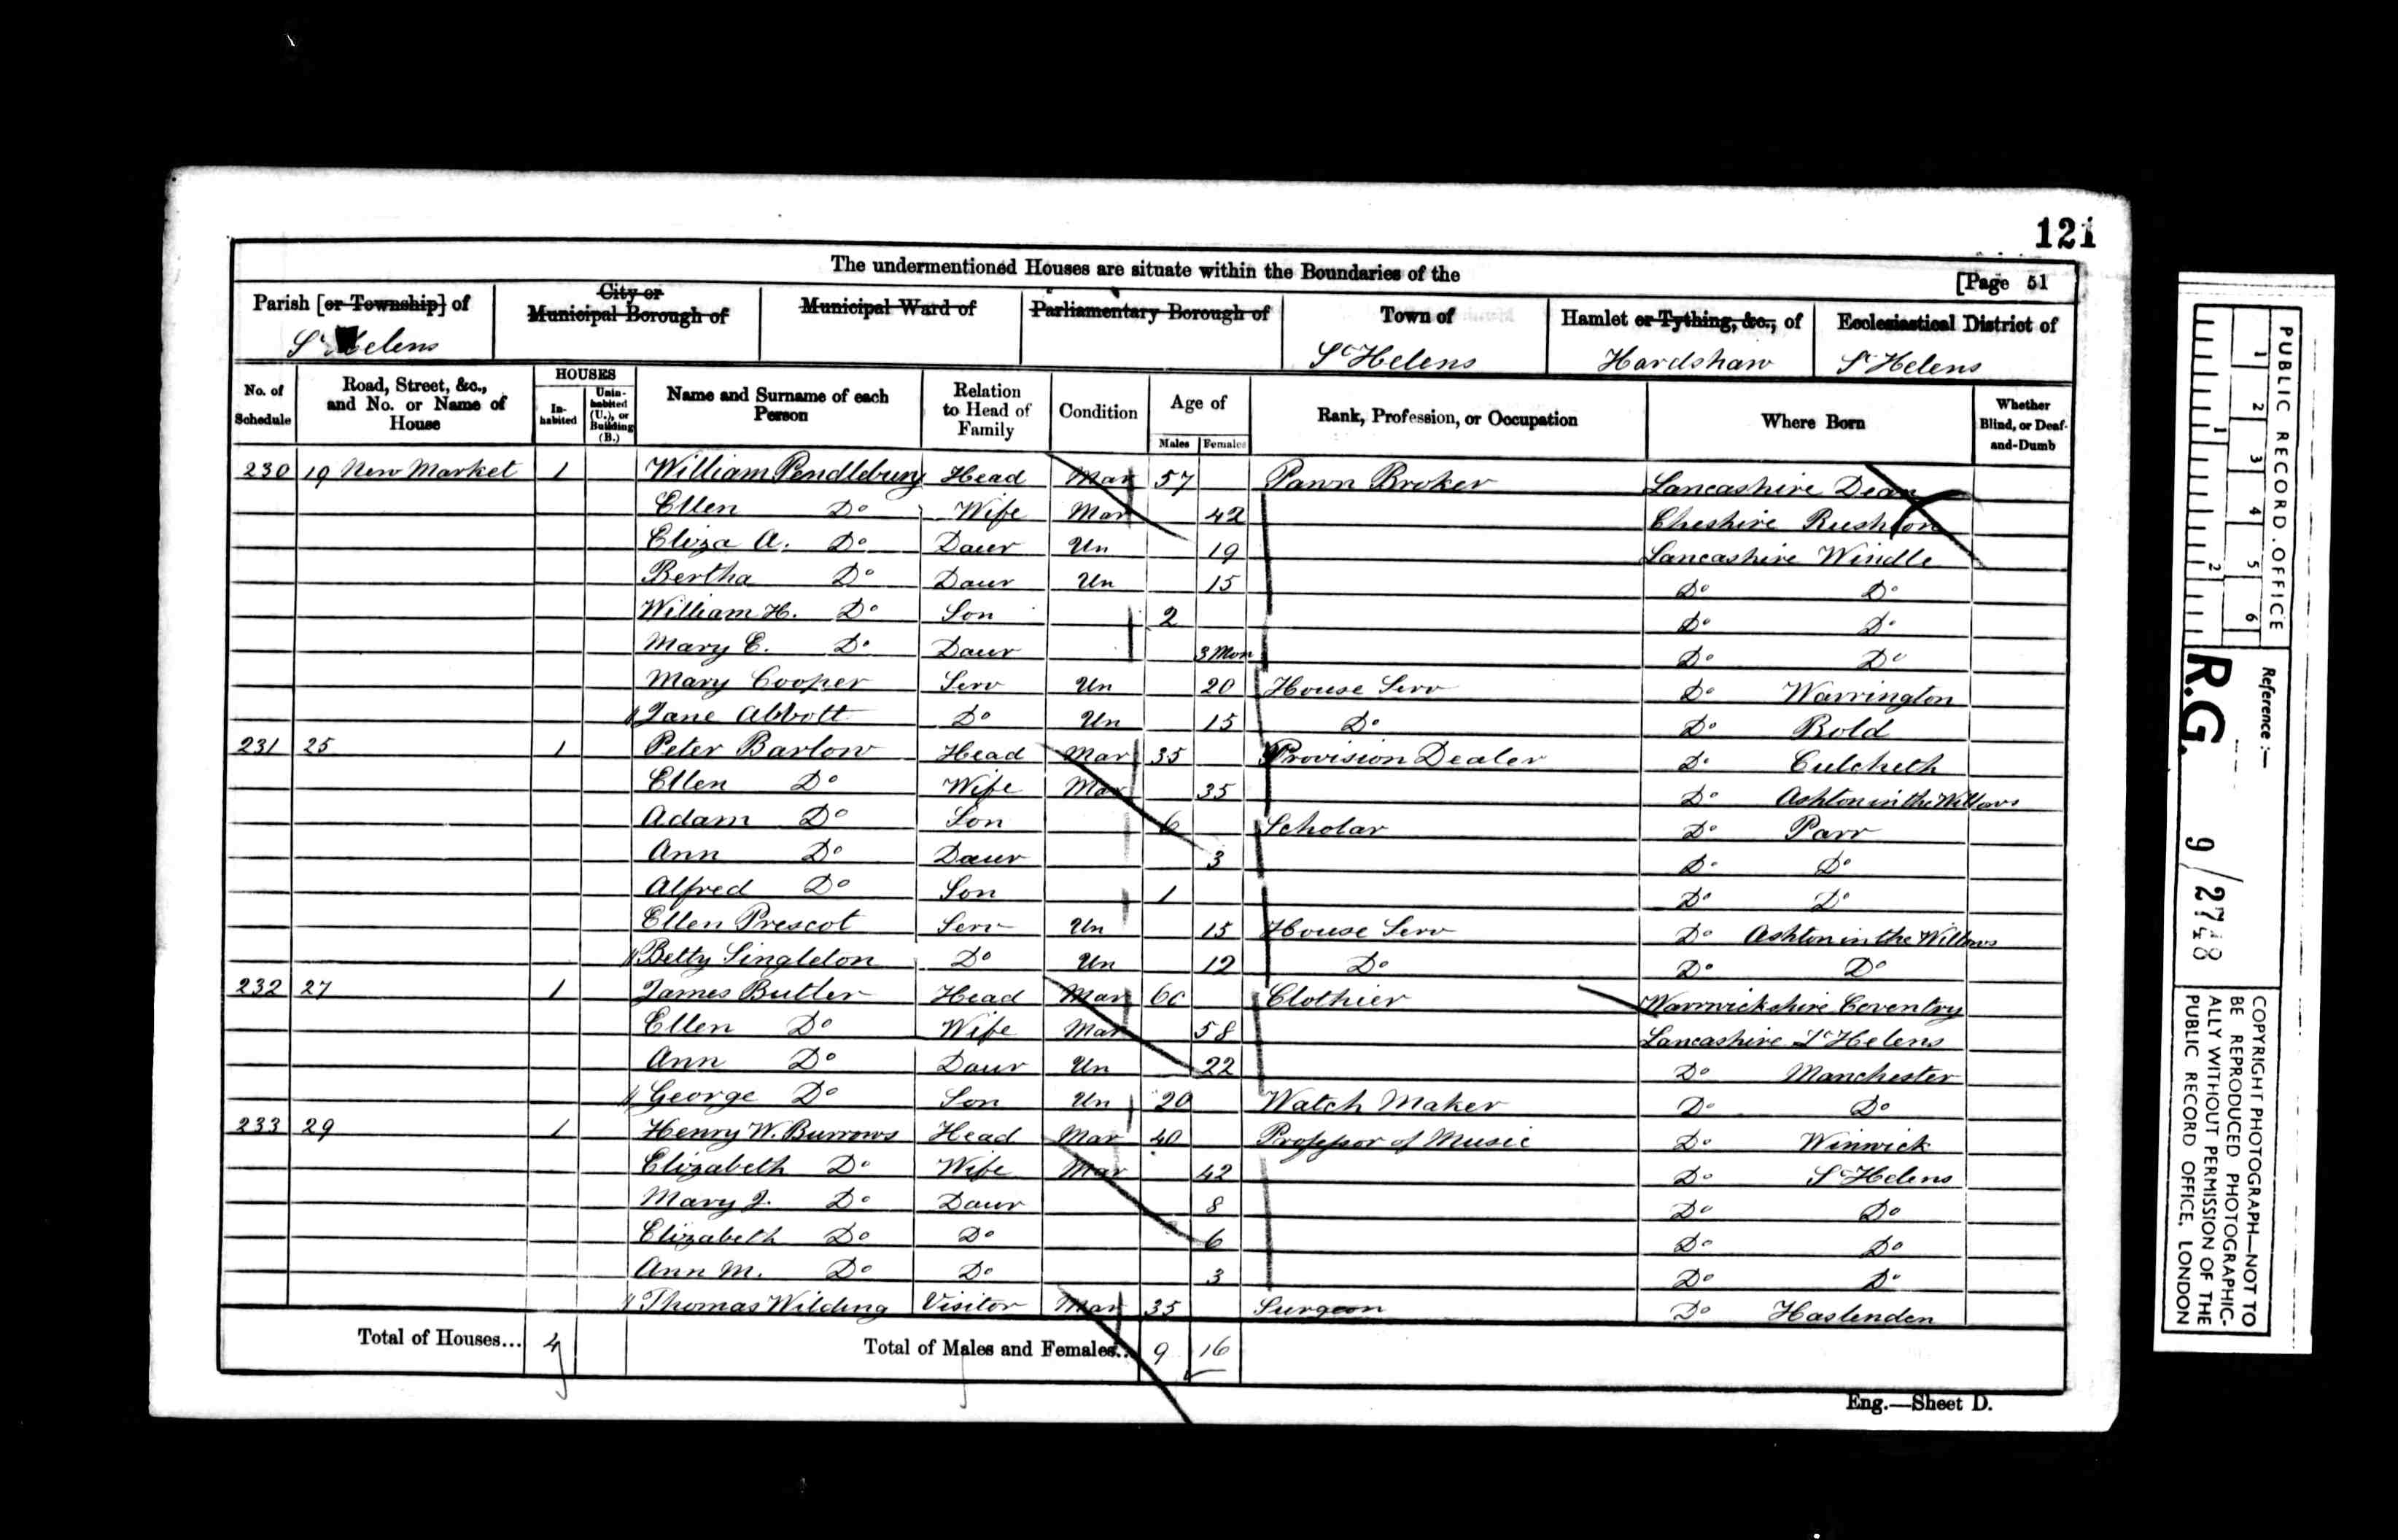 121
The undermentioned Houses are situate within the Boundaries of the [Page 51
Parish [or Township] of City or Municipal Borough of Municipal Ward of Parliamentary Borough of Town of Hamlet or Tything, &c., of Ecclesiastical District of
St Helens St Helens Hardshaw St Helens
No. of Schedule Road, Street, &c., and No. or Name of House HOUSES Inhabited Uninhabited (U.), or Building (B.) Name and Surname of each Person Relation to Head of Family Condition Age of Males Females Rank, Profession, or Occupation Where Born Whether Blind, or Deaf-and-Dumb
230 19 New Market 1 William Pendlebury Head Mar 57 Pawn Broker Lancashire Dean
Ellen Do Wife Mar 42 Cheshire Rushton
Eliza A. Do Daur Un 19 Lancashire Windle
Bertha Do Daur Un 15 Do Do
William H. Do Son 2 Do Do
Mary E. Do Daur 3 Mon Do Do
Mary Cooper Serv Un 20 House Serv Do Warrington
Jane Abbott Do Un 15 Do Do Bold
231 25 1 Peter Barlow Head Mar 35 Provision Dealer Do Culcheth
Ellen Do Wife Mar 35 Do Ashton in the Willows
Adam Do Son 6 Scholar Do Parr
Ann Do Daur 3 Do Do
Alfred Do Son 1 Do Do
Ellen Prescot Serv Un 15 House Serv Do Ashton in the Willows
Betty Singleton Do Un 12 Do Do Do
232 27 1 James Butler Head Mar 60 Clothier Warwickshire Coventry
Ellen Do Wife Mar 58 Lancashire St Helens
Ann Do Daur Un 22 Do Manchester
George Do Son Un 20 Watch Maker Do Do
233 29 1 Henry W. Burrows Head Mar 40 Professor of Music Do Winwick
Elizabeth Do Wife Mar 42 Do St Helens
Mary J. Do Daur 8 Do Do
Elizabeth Do Do 6 Do Do
Ann M. Do Do 3 Do Do
Thomas Wilding Visitor Mar 35 Surgeon Do Haslenden
Total of Houses... 4 Total of Males and Females... 9 16
Eng.—Sheet D.
PUBLIC RECORD OFFICE
1 2 3 4 5 6
1 2
Reference :—
R.G. 9/2748
COPYRIGHT PHOTOGRAPH—NOT TO
BE REPRODUCED PHOTOGRAPHIC-
ALLY WITHOUT PERMISSION OF THE
PUBLIC RECORD OFFICE, LONDON